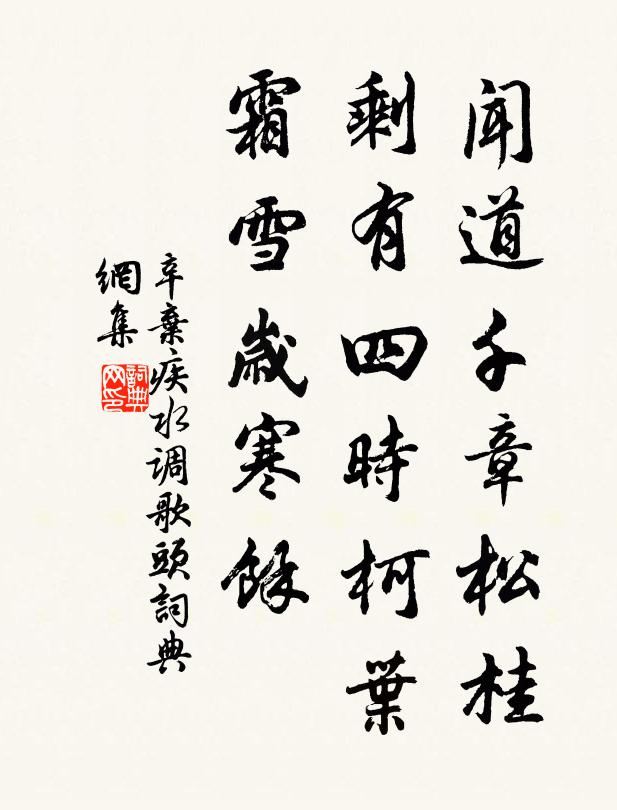 聞道千章松桂
剩有四時柯葉
霜雪歲寒餘
辛棄疾水调歌頭詞典
網集
詞典
网印